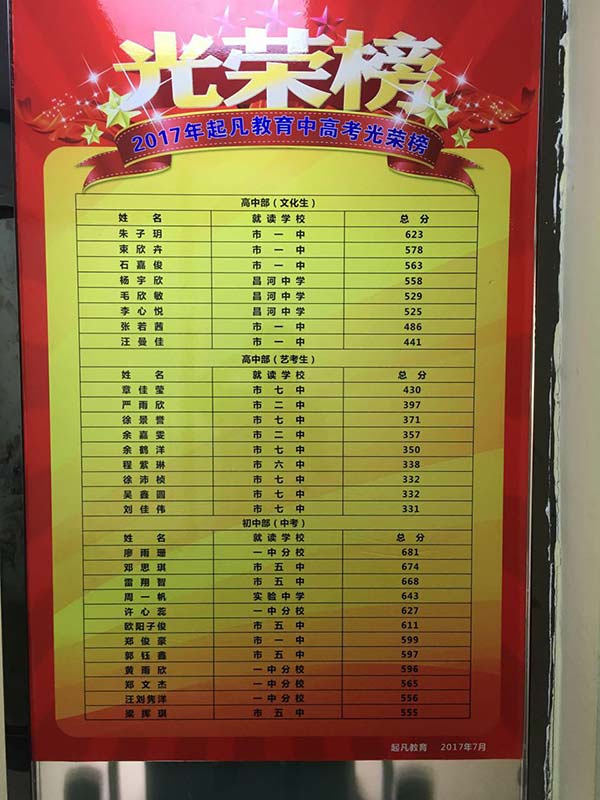 光荣榜
2017年起凡教育中高考光荣榜
高中部（文化生）
姓 名 就读学校 总 分
朱子玥 市一中 623
束欣卉 市一中 578
石嘉俊 市一中 563
杨宇欣 昌河中学 558
毛欣敏 昌河中学 529
李心悦 昌河中学 525
张若茜 市一中 486
汪曼佳 市一中 441
高中部（艺考生）
姓 名 就读学校 总 分
章佳莹 市七中 430
严雨欣 市二中 397
徐景誉 市七中 371
余嘉雯 市二中 357
余鹤洋 市七中 350
程紫琳 市六中 338
徐沛桢 市七中 332
吴鑫圆 市七中 332
刘佳伟 市七中 331
初中部（中考）
姓 名 就读学校 总 分
廖雨珊 一中分校 681
邓思琪 市五中 674
雷翔智 市五中 668
周一帆 实验中学 643
许心蕊 一中分校 627
欧阳子俊 市五中 611
郑俊豪 市一中 599
郭钰鑫 市五中 597
黄雨欣 一中分校 596
郑文杰 一中分校 565
汪刘隽洋 一中分校 556
梁挥琪 市五中 555
起凡教育 2017年7月